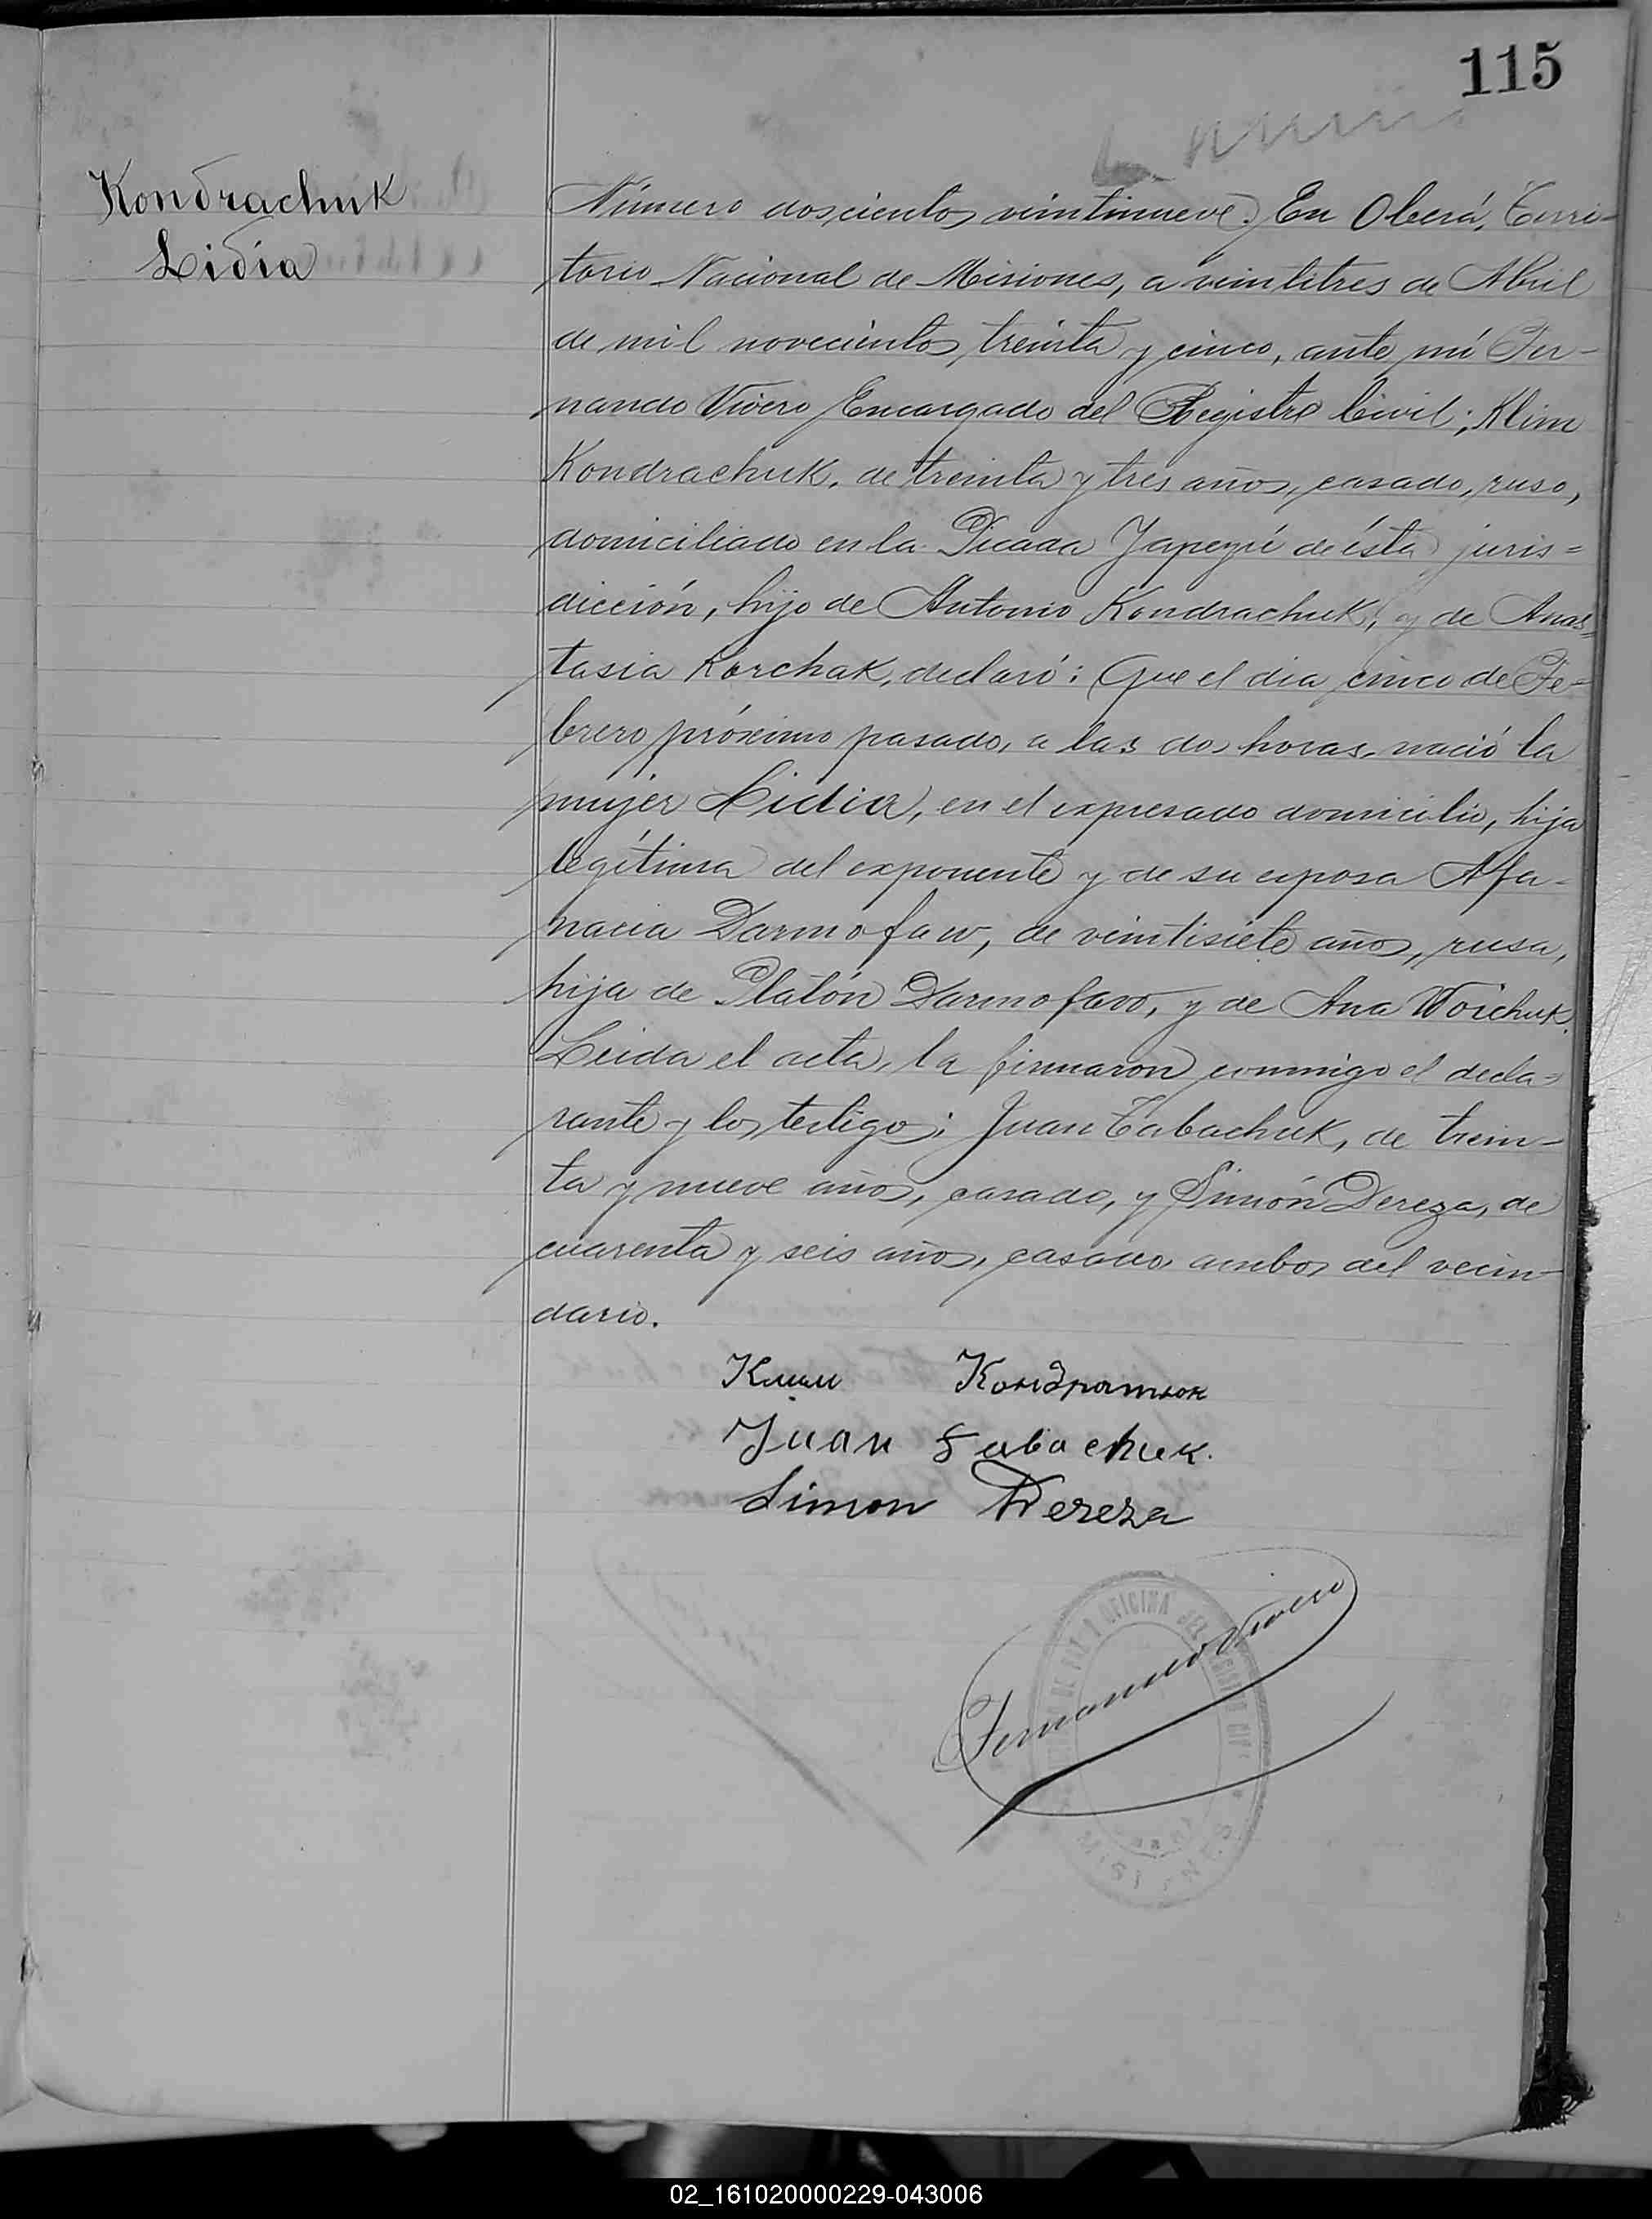 115
Kondrachuk
Lidia
Número doscientos veintinueve. En Oberá, Terri-
torio Nacional de Misiones, a veintitres de Abril
de mil novecientos treinta y cinco, ante mí Fer-
nando Vivero Encargado del Registro Civil; Klim
Kondrachuk, de treinta y tres años, casado, ruso,
domiciliado en la Picada Yapeyú de ésta juris=
dicción, hijo de Antonio Kondrachuk, y de Anas=
tasia Korchak, declaró: Que el dia cinco de Fe-
brero próximo pasado, a las dos horas, nació la
mujer Lidia, en el expresado domicilio, hija
legítima del exponente y de su esposa Afa-
nacia Darmofaw, de veintisiete años, rusa,
hija de Platón Darmofaw, y de Ana Woichuk.
Leida el acta, la firmaron conmigo el decla=
rante y los testigos: Juan Tabachuk, de trein-
ta y nueve años, casado, y Simón Dereza, de
cuarenta y seis años, casado, ambos del vecin-
dario.
Клим Кондратюк
Juan Tabachuk.
Simon Dereza
Fernando Vivero
OFICINA DEL
02_161020000229-043006